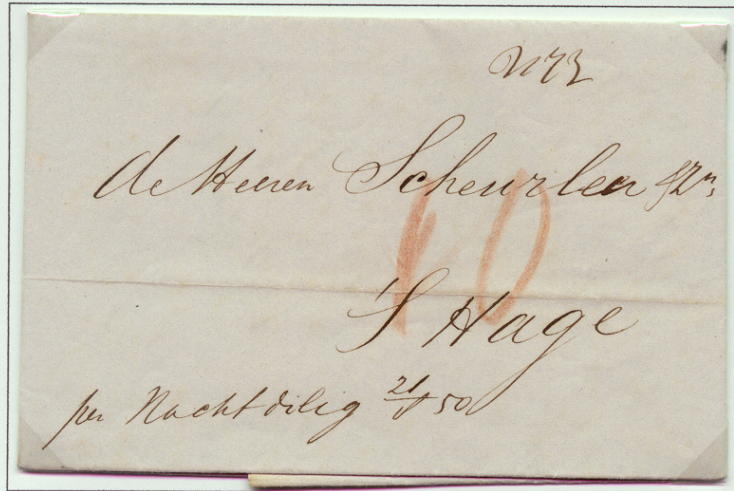 de Heeren Scheurleer & Zn,
40
'S Hage
per Nachtdilig 21/5 50